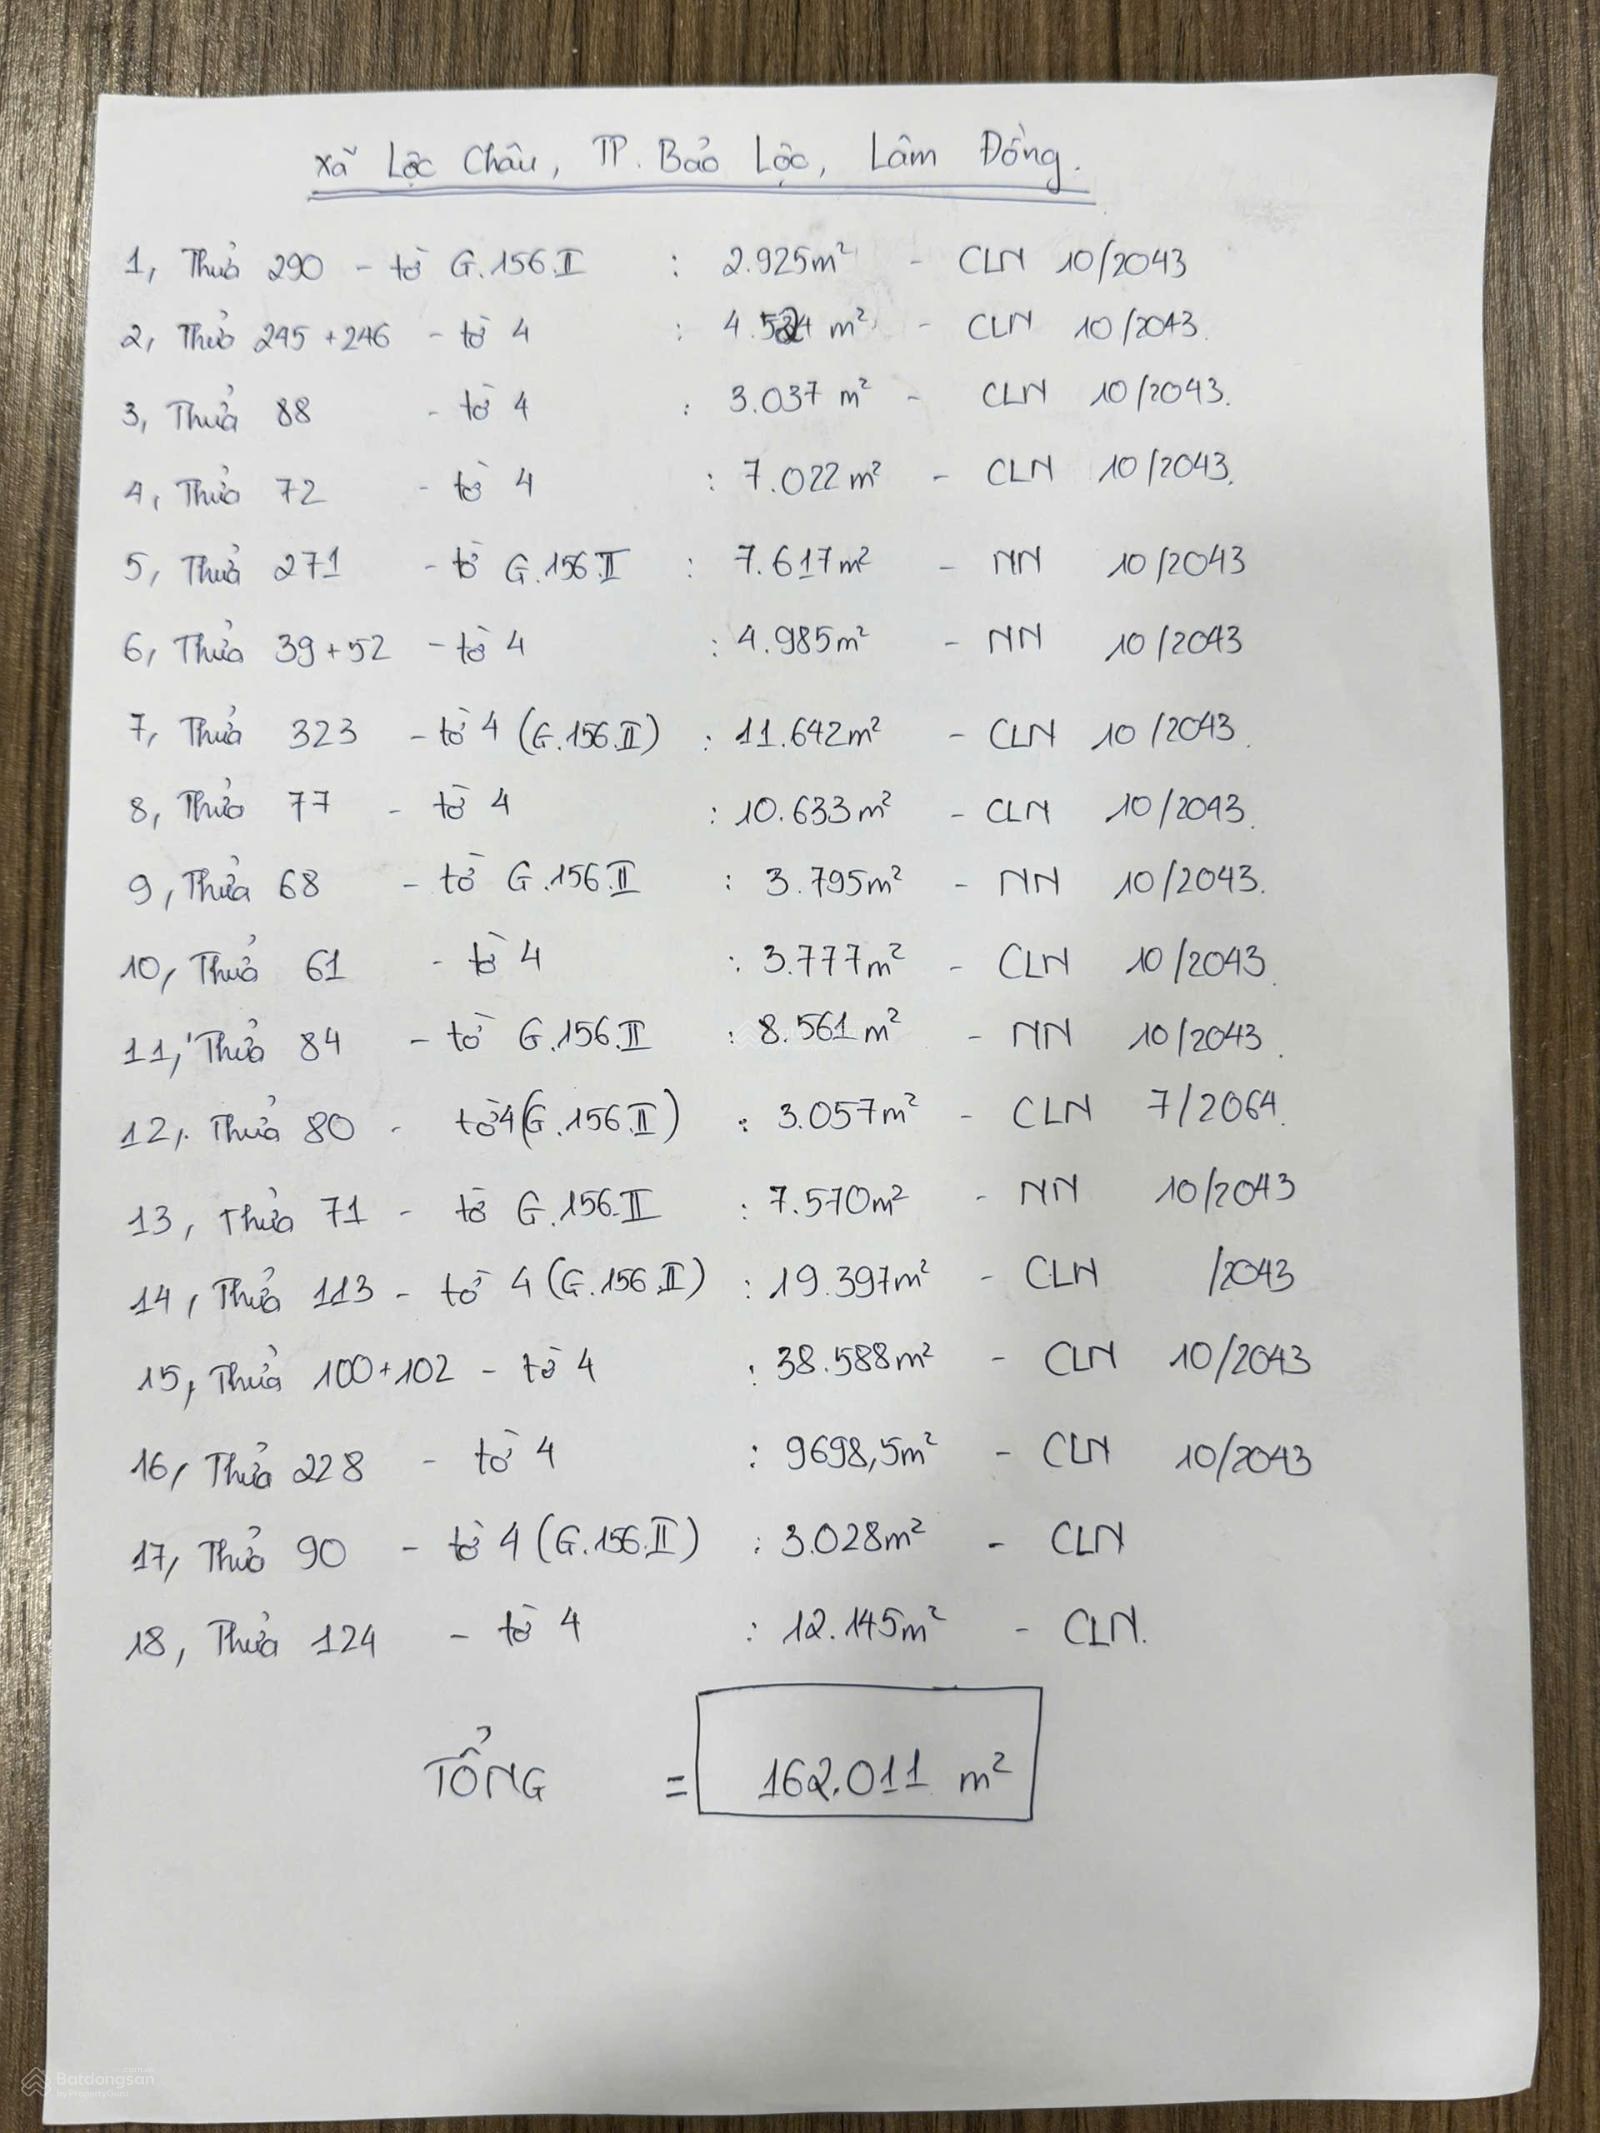 Xã Lộc Châu, TP. Bảo Lộc, Lâm Đồng.
1, Thửa 290 - tờ G.156.II : 2.925m² - CLN 10/2043
2, Thửa 245+246 - tờ 4 : 4.524 m² - CLN 10/2043.
3, Thửa 88 - tờ 4 : 3.037 m² - CLN 10/2043.
4, Thửa 72 - tờ 4 : 7.022 m² - CLN 10/2043.
5, Thửa 271 - tờ G.156.II : 7.617m² - NN 10/2043
6, Thửa 39+52 - tờ 4 : 4.985m² - NN 10/2043
7, Thửa 323 - tờ 4 (G.156.II) : 11.642m² - CLN 10/2043.
8, Thửa 77 - tờ 4 : 10.633m² - CLN 10/2043.
9, Thửa 68 - tờ G.156.II : 3.795m² - NN 10/2043.
10, Thửa 61 - tờ 4 : 3.777m² - CLN 10/2043.
11, Thửa 84 - tờ G.156.II : 8.561m² - NN 10/2043.
12, Thửa 80 - tờ 4 (G.156.II) : 3.057m² - CLN 7/2064.
13, Thửa 71 - tờ G.156.II : 7.570m² - NN 10/2043
14, Thửa 113 - tờ 4 (G.156.II) : 19.397m² - CLN /2043
15, Thửa 100+102 - tờ 4 : 38.588m² - CLN 10/2043
16, Thửa 228 - tờ 4 : 9698,5m² - CLN 10/2043
17, Thửa 90 - tờ 4 (G.156.II) : 3.028m² - CLN
18, Thửa 124 - tờ 4 : 12.145m² - CLN.
TỔNG = 162.011 m²
Batdongsan.com.vn
by PropertyGuru